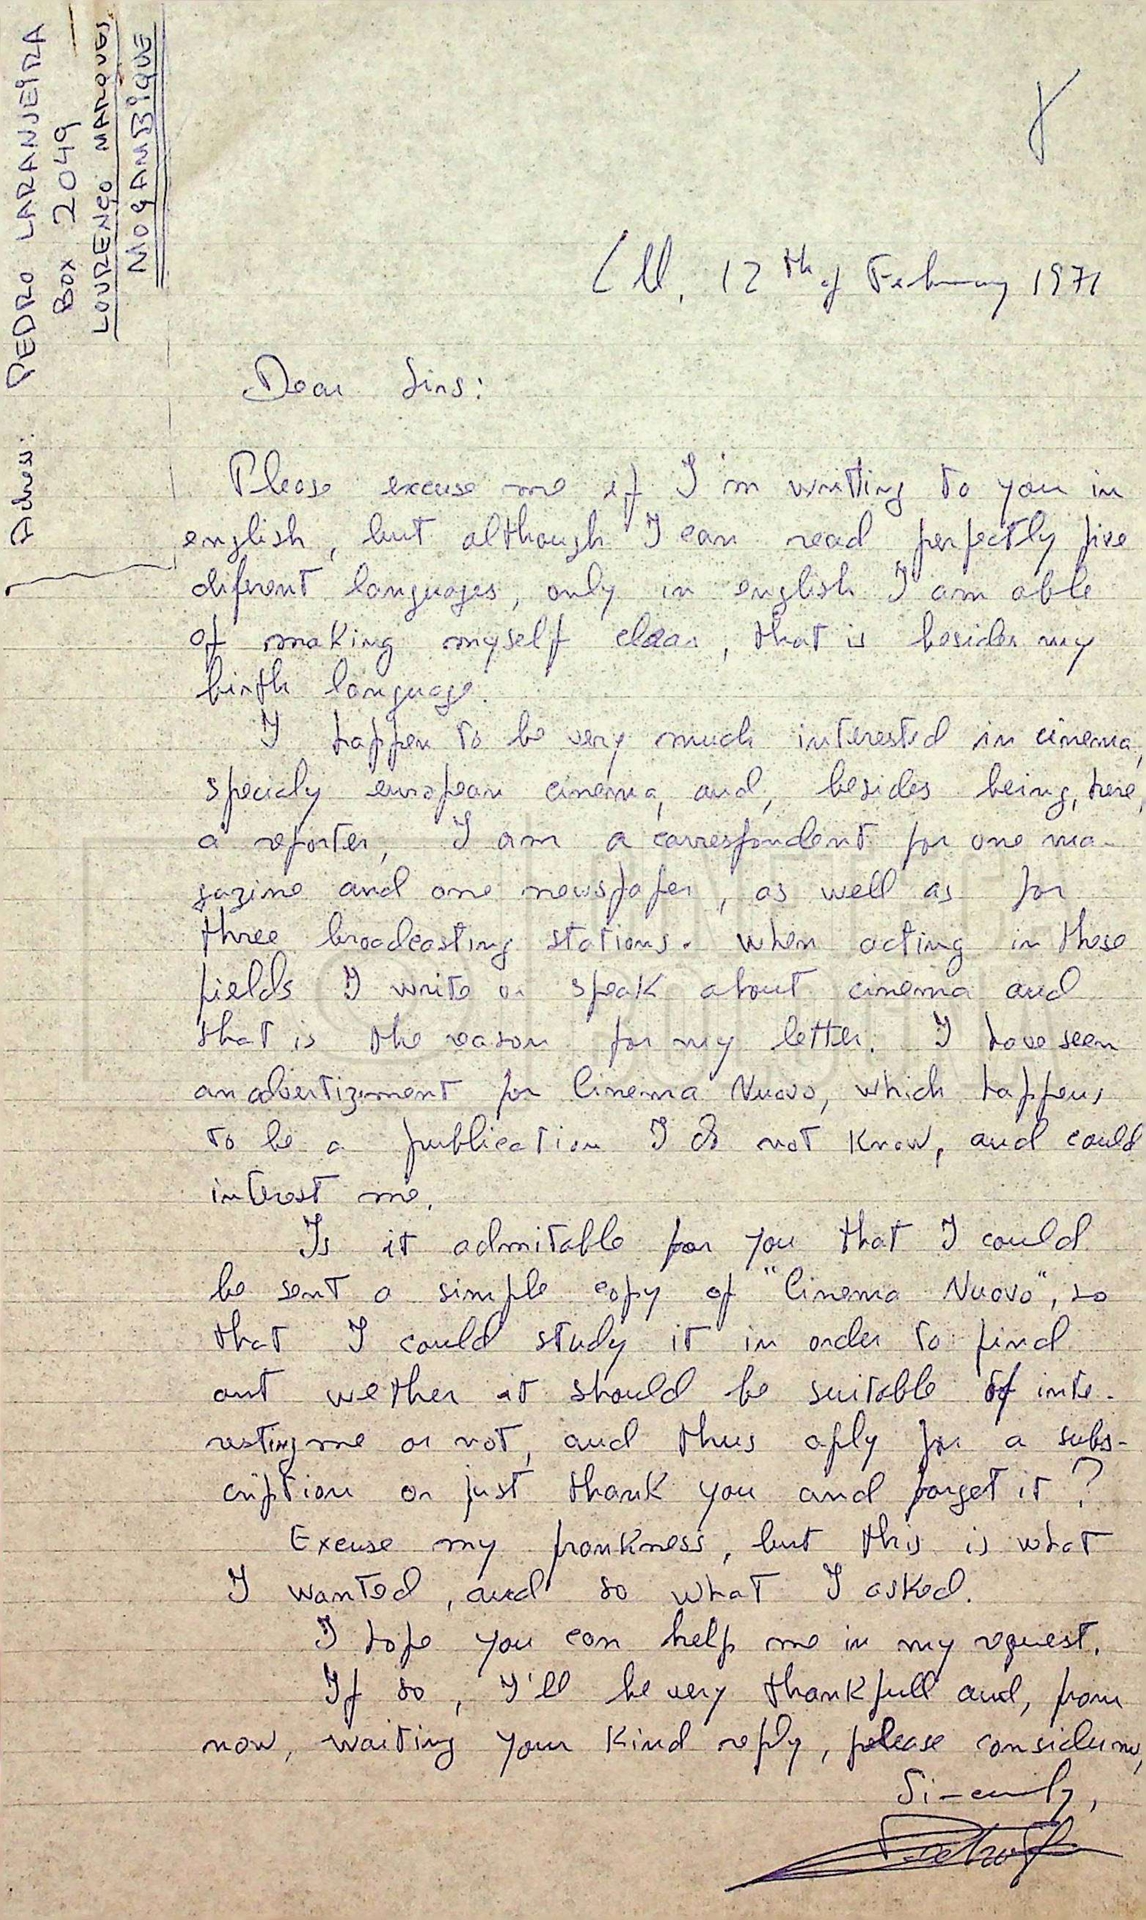 Adress: PEDRO LARANJEIRA
Box 2049
LOURENÇO MARQUES
MOÇAMBIQUE
LM, 12th of February 1971
Dear Sirs:
Please excuse me if I'm writting to you in
english, but although I can read perfectly five
diferent languages, only in english I am able
of making myself clear, that is besides my
birth language.
I happen to be very much interested in cinema,
specialy european cinema, and, besides being, here,
a reporter, I am a correspondent for one ma-
gazine and one newspaper, as well as for
three broadcasting stations. When acting in these
fields I write or speak about cinema and
that is the reason for my letter. I have seen
an advertizement for Cinema Nuovo, which happens
to be a publication I do not know, and could
interest me.
Is it admitable for you that I could
be sent a simple copy of "Cinema Nuovo", so
that I could study it in order to find
out wether it should be suitable of inte-
resting me or not, and thus aply for a subs-
cription or just thank you and forget it?
Excuse my frankness, but this is what
I wanted, and so what I asked.
I hope you can help me in my request.
If so, I'll be very thankfull and, from
now, waiting your kind reply, please consider me,
Sincerely,